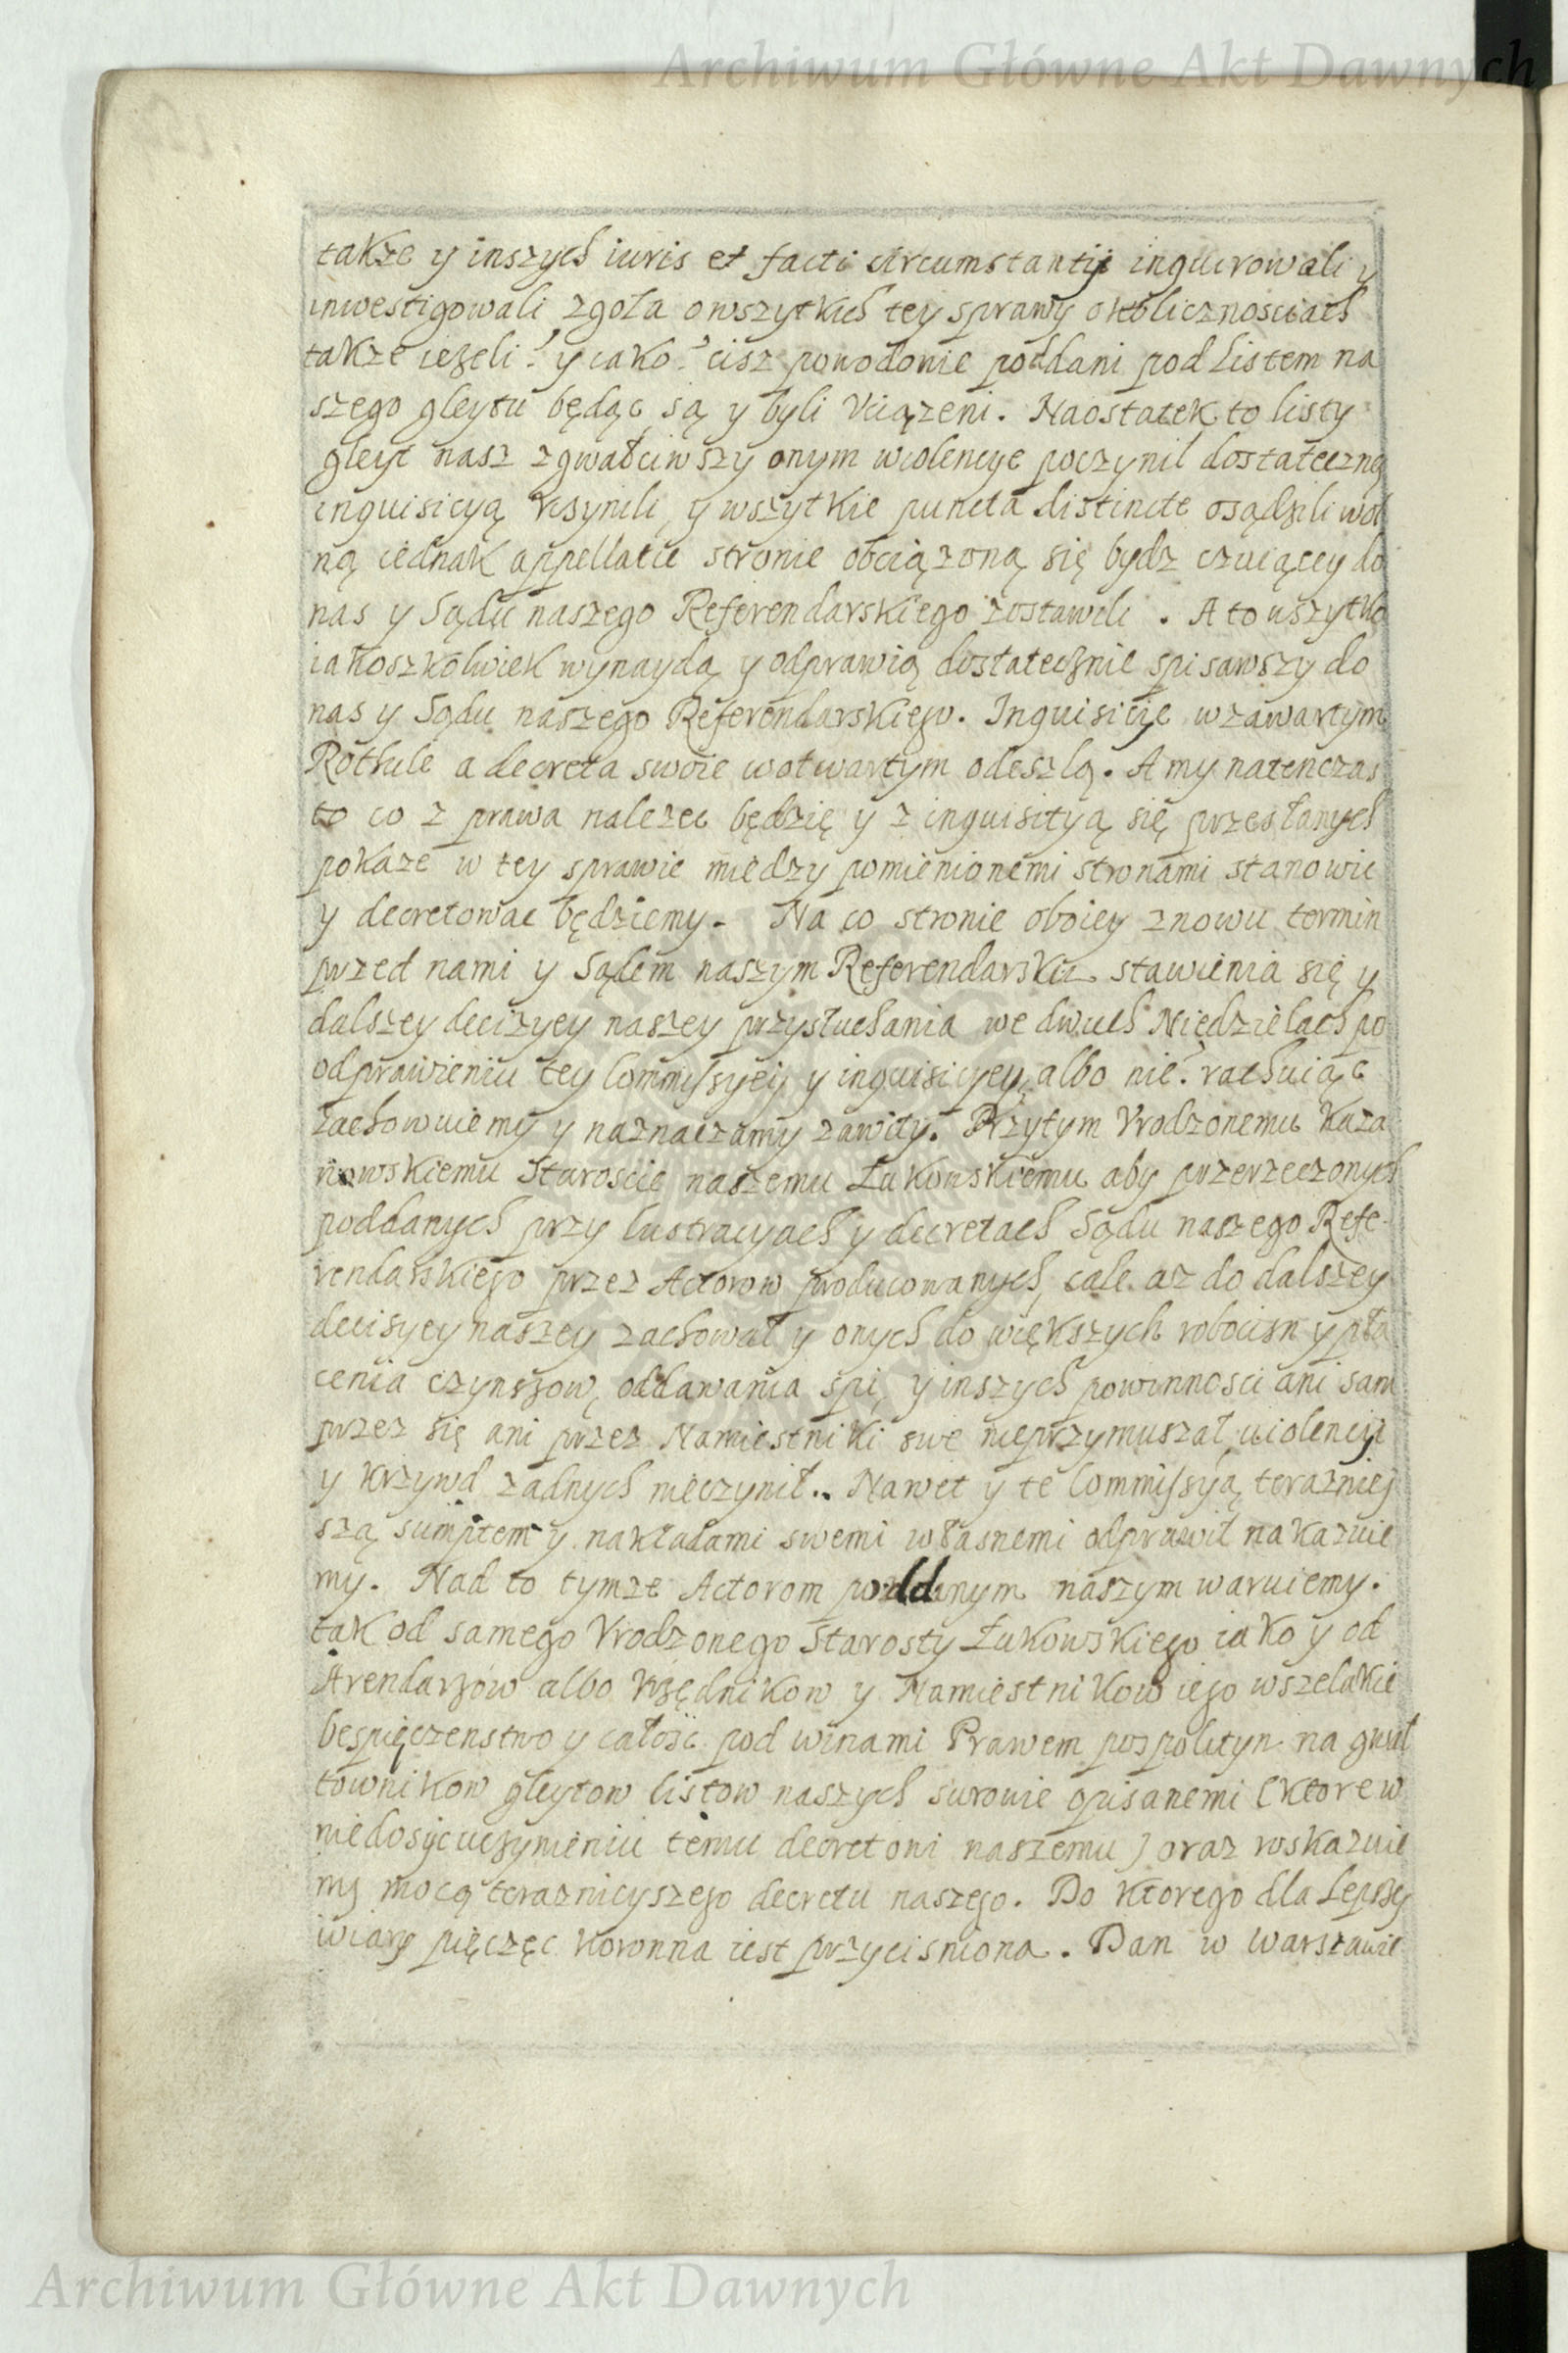 Archiwum Główne Akt Dawnych
także y inszych iuris et facti circumstantij inquirowali y
inwestigowali zgoła o wszytkich tey sprawy okolicznosciach
także ieżeli? y iako? cisz powodowie poddani pod Listem na
szego gleytu będąc są y byli Vciązeni. Naostatek to listy
gleyt nasz zgwałciwszy onym wiolencye poczynił dostateczną
inquisicyą vczynili, y wszytkie puncta distincte osądzili wol
ną iednak appellatie stronie obciązoną się bydz czuiącey do
nas y Sądu naszego Referendarskiego zostawili. A to wszytko
iakoszkolwiek wynaydą y odprawią dostatecznie spisawszy do
nas y Sądu naszego Referendarskiego. Inquisitie w zawartym
Rothule a decreta swoie w otwartym odeszlą. A my natenczas
to co z prawa nalezec będzię y z inquisityą się przesłanych
pokaze w tey sprawie między pomienionemi stronami stanowic
y decretowac będziemy. Na co stronie oboiey znowu termin
przed nami y Sądem naszym Referendarskim stawienia się y
dalszey decizyey naszey przysłuchania we dwuch Niedzielach po
odprawieniu tey Commissyeij y inquisicyey, albo nie? rachuiąc
zachowuiemy y naznaczamy zawity. Przytym Vrodzonemu Kaza
nowskiemu Staroscie naszemu Łukowskiemu aby przerzeczonych
poddanych przy lustracyach y decretach Sądu naszego Refe-
rendarskiego przez Actorow producowanych, cale az do dalszey
decisyey naszey zachował y onych do większych robocizn y pła
cenia czynszow, oddawania spi, y inszych powinnosci ani sam
przez się ani przez Namiestniki swe nieprzymuszał wiolencij
y krzywd zadnych nieczynił. Nawet y te Commissyą terazniej
szą sumptem y nakładami swemi własnemi odprawił nakazuie
my. Nad to tymze Actorom poddanym naszym waruiemy.
tak od samego Vrodzonego Starosty Łukowskiego iako y od
Arendarzow albo Vrzędnikow y Namiestnikow iego wszelakie
bespięczenstwo y całosc pod winami Prawem pospolitym na gwał
townikow gleytow listow naszych surowie opisanemi (ktore w
niedosycuczynieniu temu decretowi naszemu) oraz roskazuie
my mocą teraznieyszego decretu naszego. Do ktorego dla Lepszey
wiary pięczęc koronna iest przycisniona. Dan w Warszawie
Archiwum Główne Akt Dawnych